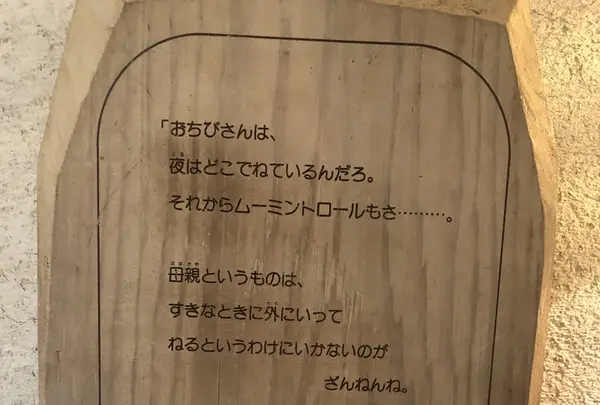 「おちびさんは、
夜はどこでねているんだろ。
それからムーミントロールもさ………。
母親というものは、
すきなときに外にいって
ねるというわけにいかないのが
ざんねんね。